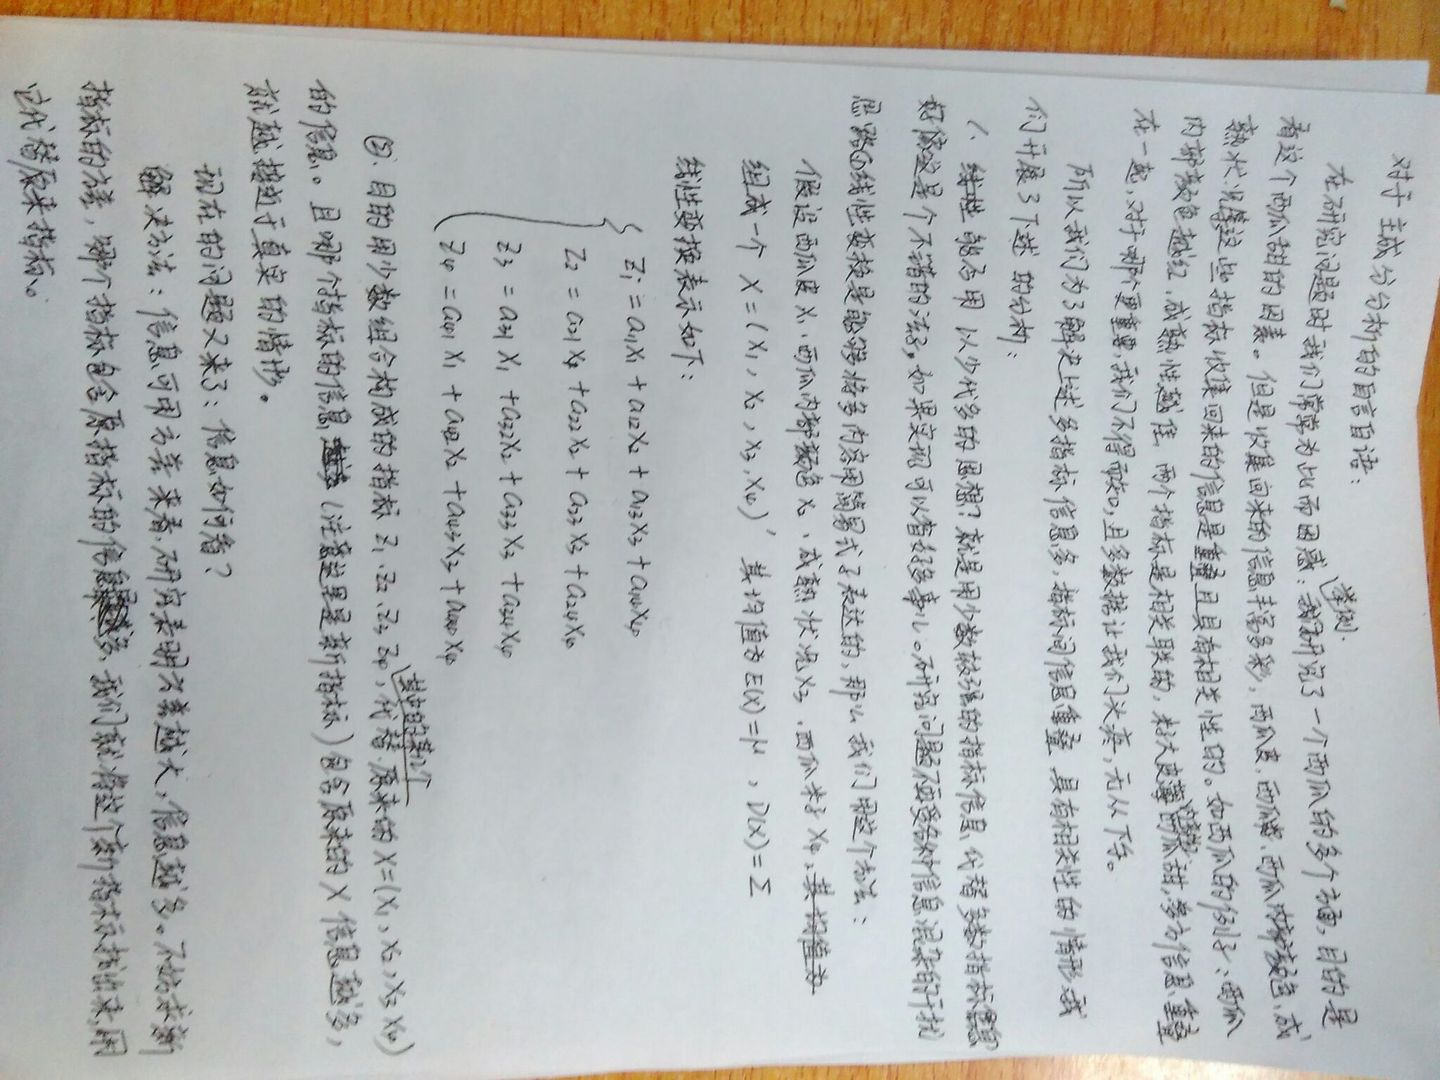 对于主成分分析的自言自语：
举例.
在研究问题时我们常常为此而困惑：我研究了一个西瓜的多个方面，目的是
看这个西瓜甜的因素。但是收集回来的信息丰富多彩，西瓜皮、西瓜、西瓜内部颜色、成
熟状况等这些指标收集回来的信息是重叠且具有相关性的。如西瓜的例子：西瓜
内部颜色越红，成熟性越佳，两个指标是相关联的，籽大皮薄西瓜甜，多方信息重叠
在一起，对于哪个更重要，我们不得而知，且多数据让我们头疼，无从下手。
所以我们为了解决上述多指标信息多，指标间信息重叠 具有相关性的情形，我
们开展了下述的分析：
1、线性 能否用 以少代多的思想？就是用少数较强的指标信息代替多数指标信息
好像这是个不错的法子，如果实现可以省好多事儿。研究问题不再受各种信息混杂的干扰
思路①线性变换是能够将多内容用简易式子表达的，那么我们用这个方法：
假设西瓜皮X₁、西瓜内部颜色X₂、成熟状况X₃、西瓜籽子X₄，其均值为
组成一个 X=(X₁, X₂, X₃, X₄)' 其均值为E(X)=μ ，D(X)=Σ
线性变换表示如下：
Z₁ = a₁₁X₁ + a₁₂X₂ + a₁₃X₃ + a₁₄X₄
Z₂ = a₂₁X₁ + a₂₂X₂ + a₂₃X₃ + a₂₄X₄
Z₃ = a₃₁X₁ + a₃₂X₂ + a₃₃X₃ + a₃₄X₄
Z₄ = a₄₁X₁ + a₄₂X₂ + a₄₃X₃ + a₄₄X₄
其中的某几个
②. 目的用少数组合构成的指标 Z₁、Z₂、Z₃ Z₄，代替原来的X=(X₁, X₂, X₃ X₄)
的信息。且哪个指标的信息（注意这里是新指标）包含原来的X信息越多，
就越接近于真实的情形。
现在的问题又来了：信息如何看？
解决方法：信息可用方差来看，研究表明方差越大，信息越多。不妨求新
指标的方差，哪个指标包含原指标的信息多，我们就将这个新指标找出来，用
它代替原来指标。